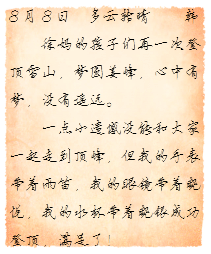 8月8日 多云转晴 韩
徐妈的孩子们再一次登
顶雪山，梦圆姜峰，心中有
梦，没有遥远。
一点小遗憾没能和大家
一起走到顶峰，但我的手表
带着雨笛，我的眼镜带着魏
悦，我的水杯带着魏银成功
登顶，满足了！